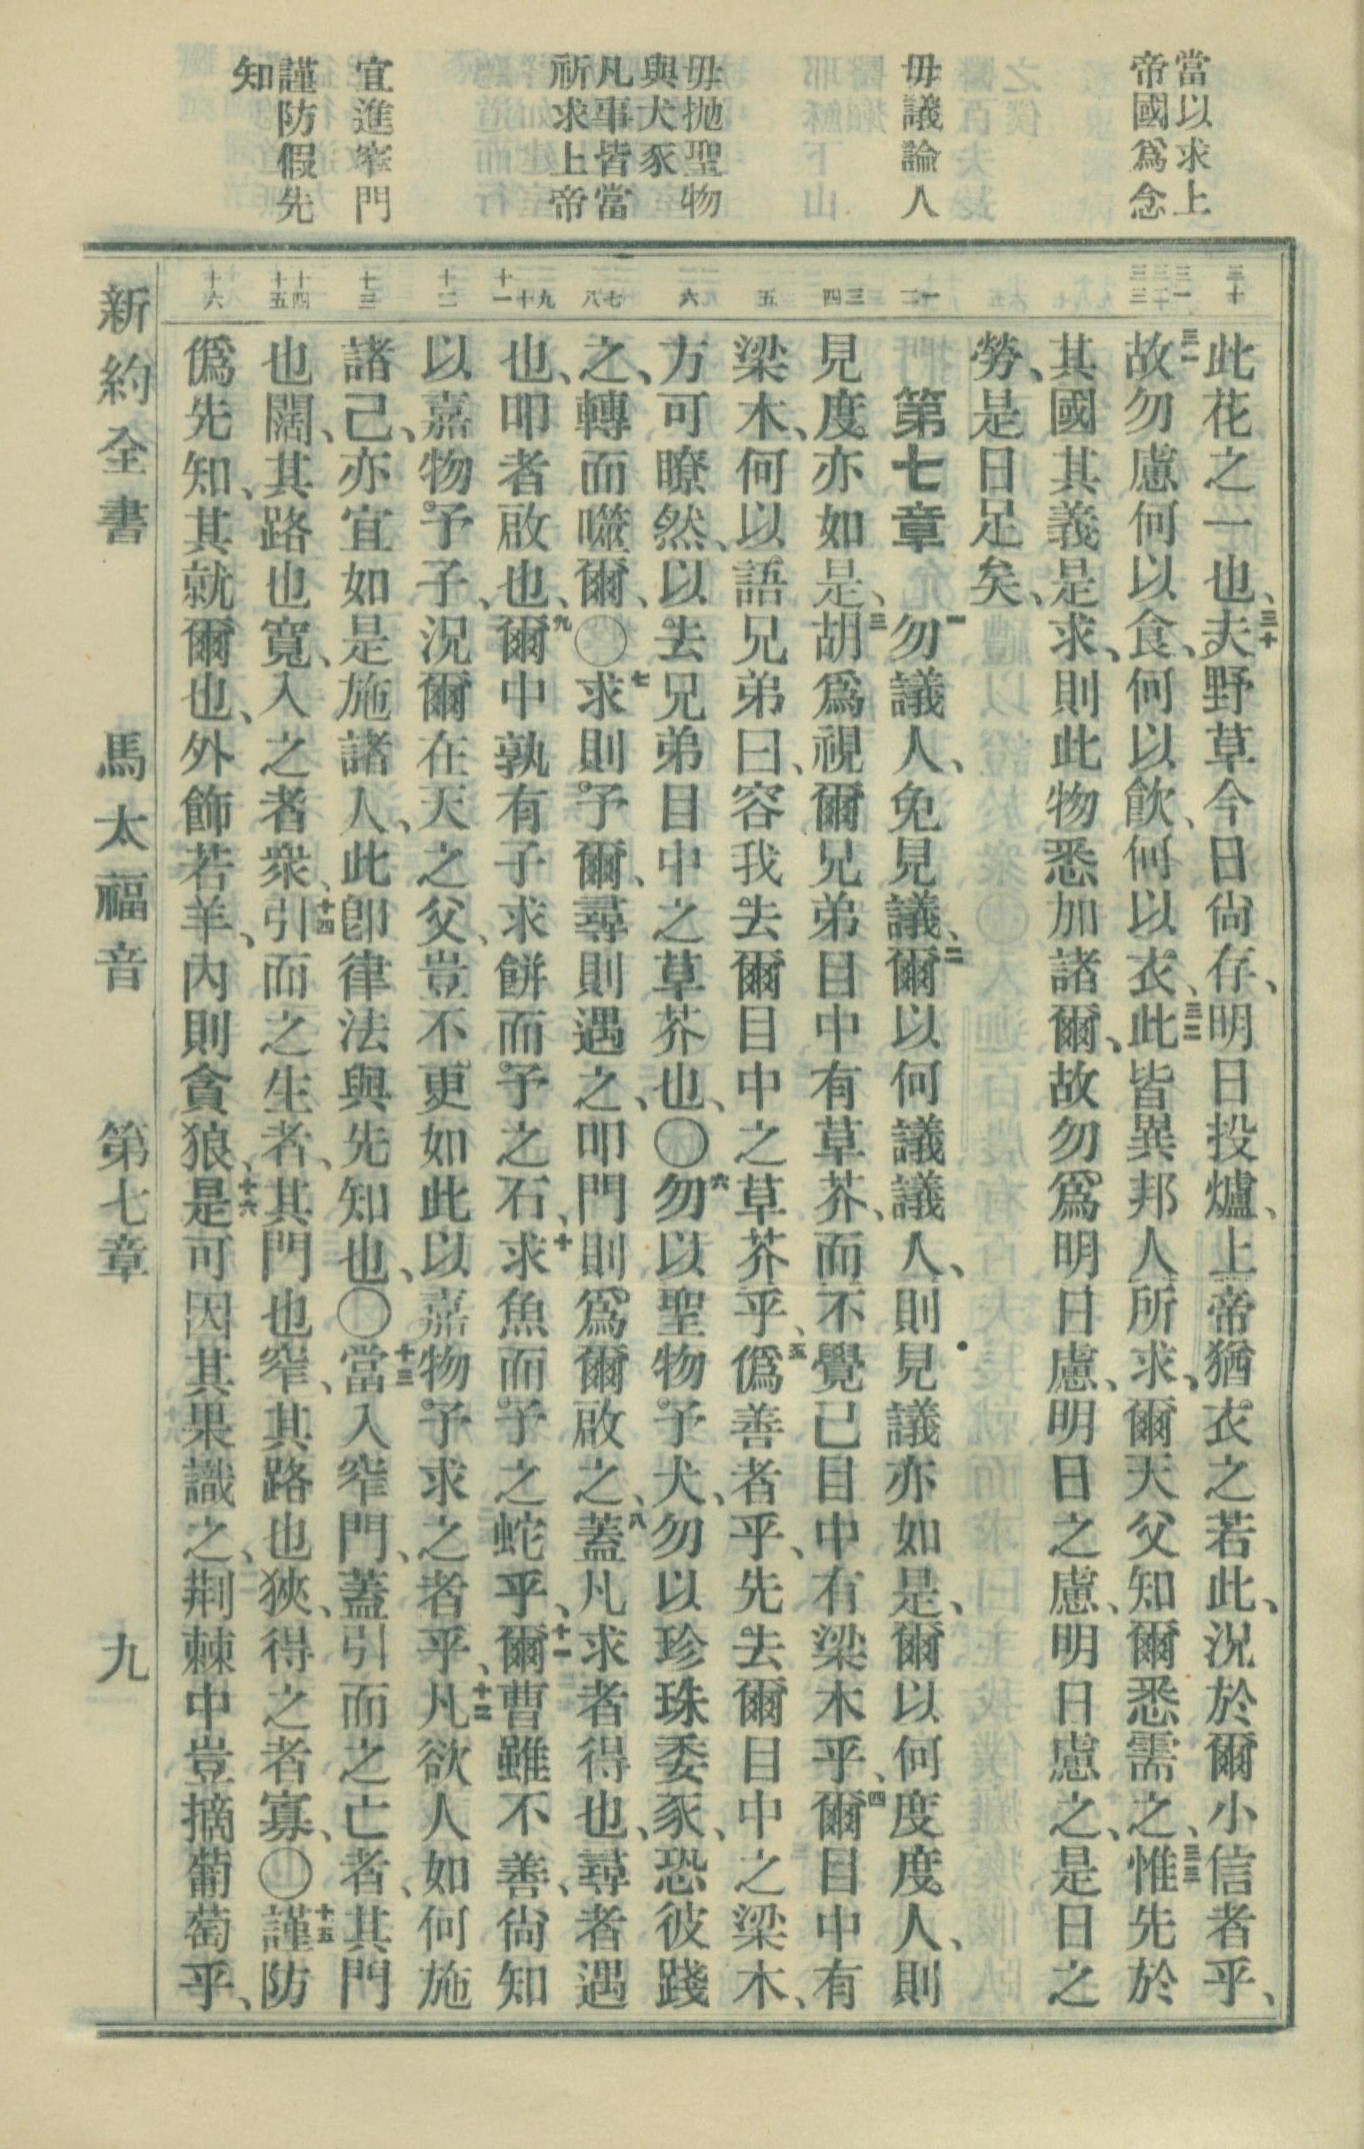 當以求上
帝國爲念
毋議論人
毋抛聖物
與犬豕
凡事皆當
祈求上帝
宜進窄門
謹防假先
知
三十
三一
三二
三三
一
二
三
四
五
六
七
八
九
十
十一
十二
十三
十四
十五
十六
此花之一也、三十夫野草今日尙存、明日投爐、上帝猶衣之若此、況於爾小信者乎、
三一故勿慮何以食、何以飮、何以衣、三二此皆異邦人所求、爾天父知爾悉需之、三三惟先於
其國其義是求、則此物悉加諸爾、故勿爲明日慮、明日之慮、明日慮之、是日之
勞、是日足矣、
第七章 一勿議人、免見議、二爾以何議議人、則見議亦如是、爾以何度度人、則
見度亦如是、三胡爲視爾兄弟目中有草芥、而不覺己目中有梁木乎、四爾目中有
梁木、何以語兄弟曰、容我去爾目中之草芥乎、五僞善者乎、先去爾目中之梁木、
方可瞭然、以去兄弟目中之草芥也、〇六勿以聖物予犬、勿以珍珠委豕、恐彼踐
之、轉而噬爾、〇七求則予爾、尋則遇之、叩門則爲爾啟之、八蓋凡求者得也、尋者遇
也、叩者啟也、九爾中孰有子求餅而予之石、十求魚而予之蛇乎、十一爾曹雖不善、尙知
以嘉物予子、況爾在天之父、豈不更如此以嘉物予求之者乎、十二凡欲人如何施
諸己、亦宜如是施諸人、此卽律法與先知也、〇十三當入窄門、蓋引而之亡者、其門
也闊、其路也寬、入之者衆、十四引而之生者、其門也窄、其路也狹、得之者寡、〇十五謹防
僞先知、其就爾也、外飾若羊、內則貪狼、十六是可因其果識之、荆棘中豈摘葡萄乎、
新約全書 馬太福音 第七章 九